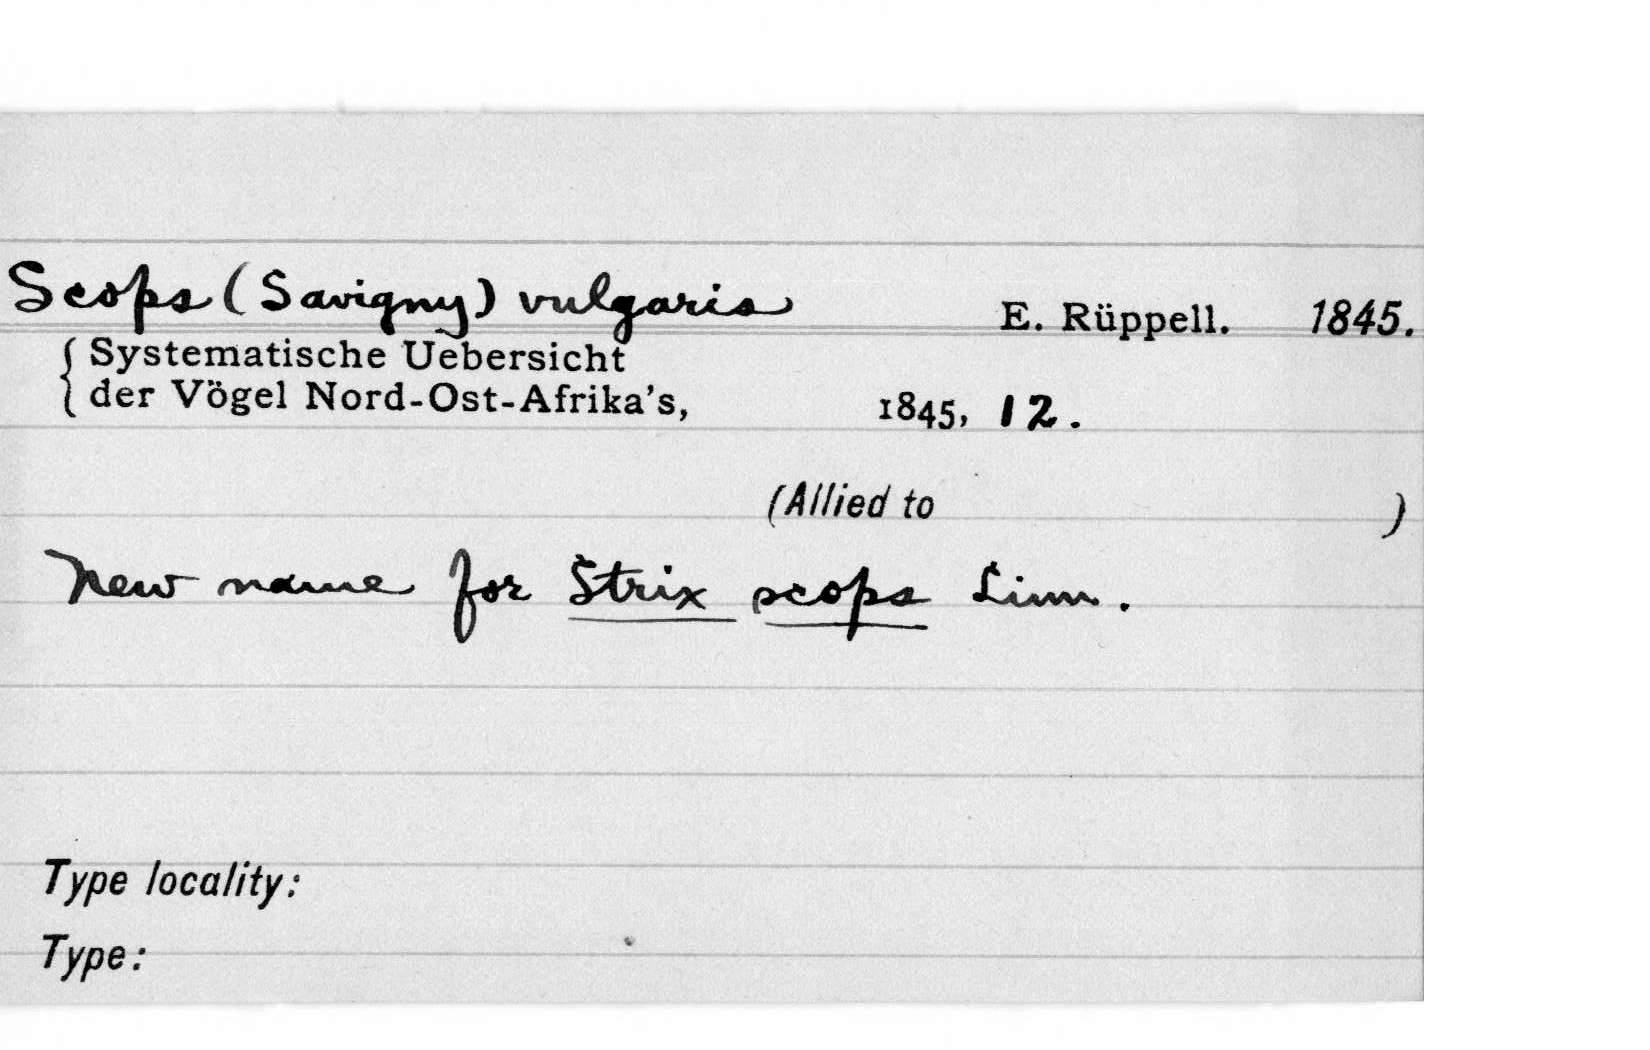 Scops (Savigny) vulgaris E. Rüppell. 1845.
Systematische Uebersicht
der Vögel Nord-Ost-Afrika's, 1845, 12.
(Allied to )
New name for Strix scops Linn.
Type locality:
Type: